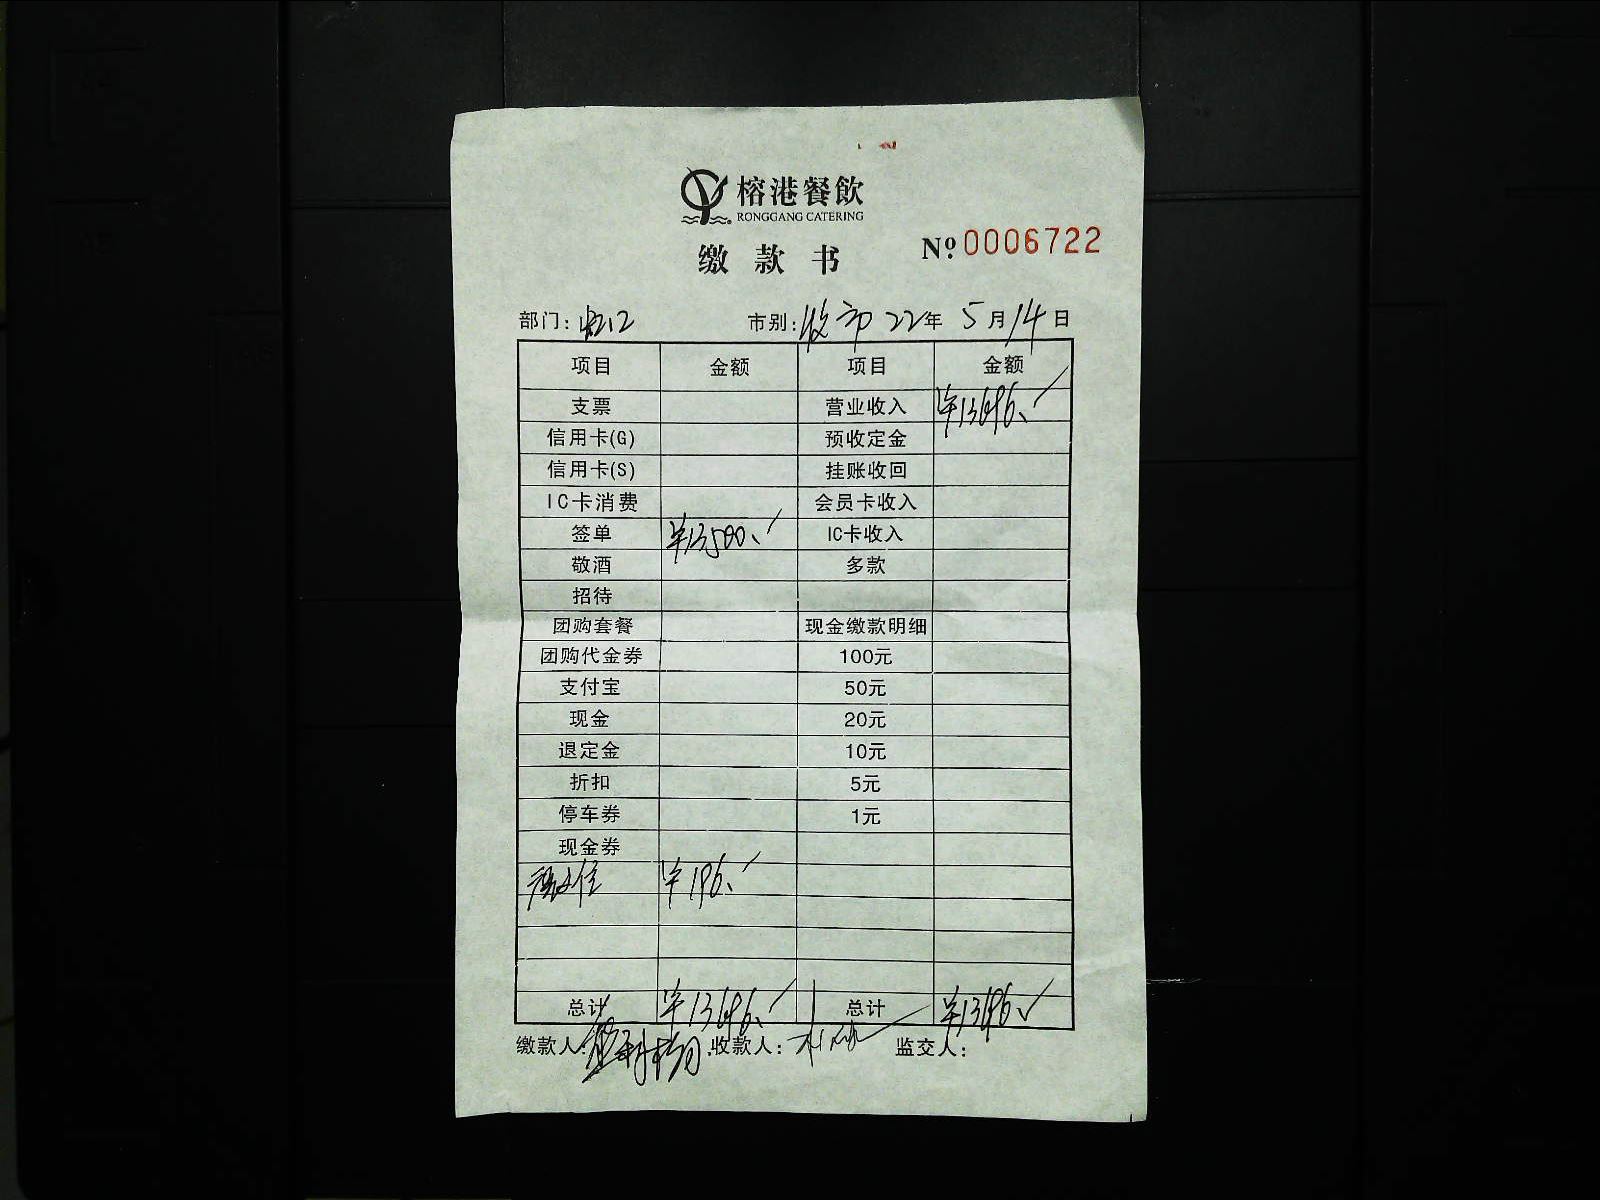 榕港餐飲
RONGGANG CATERING
缴款书 Nº 0006722
部门: 市别:收市 22年 5月14日
项目 金额 项目 金额
支票 营业收入 ¥13696.
信用卡(G) 预收定金
信用卡(S) 挂账收回
IC卡消费 会员卡收入
签单 ¥13500. IC卡收入
敬酒 多款
招待
团购套餐 现金缴款明细
团购代金券 100元
支付宝 50元
现金 20元
退定金 10元
折扣 5元
停车券 1元
现金券
¥196.
总计 ¥13696. 总计 ¥13696.
缴款人: 收款人: 监交人: